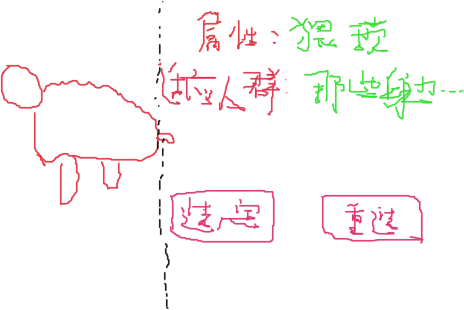 属性：猥琐
适应人群：那些身为…
选定
重选